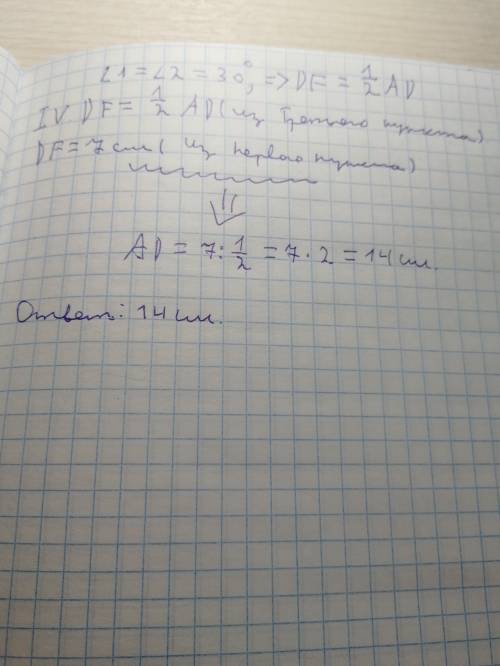 ∠1 = ∠2 = 30°, => DF = 1/2 AD
IV DF = 1/2 AD (из третьего пункта)
DF = 7 см (из первого пункта)
⇓
AD = 7 : 1/2 = 7 · 2 = 14 см.
Ответ: 14 см.